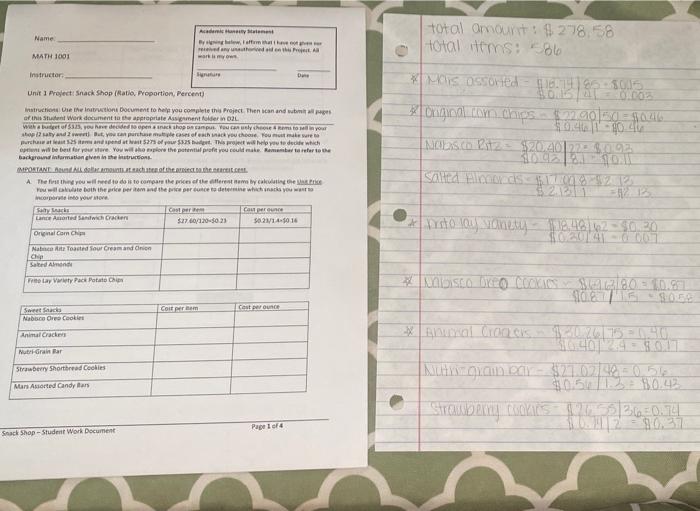 Name:
MATH 1001
Instructor:
Academic Honesty Statement
By signing below, I affirm that I have not given nor
received any unauthorized aid on this Project. All
work is my own.
Signature Date
Unit 1 Project: Snack Shop (Ratio, Proportion, Percent)
Instructions: Use the Instructions Document to help you complete this Project. Then scan and submit all pages
of this Student Work document to the appropriate Assignment folder in D2L.
With a budget of $325, you have decided to open a snack shop on campus. You can only choose 4 items to sell in your
shop (2 salty and 2 sweet). But, you can purchase multiple cases of each snack you choose. You must make sure to
purchase at least 525 items and spend at least $275 of your $325 budget. This project will help you to decide which
options will be best for your store. You will also explore the potential profit you could make. Remember to refer to the
background information given in the Instructions.
IMPORTANT: Round ALL dollar amounts at each step of the project to the nearest cent.
A. The first thing you will need to do is to compare the prices of the different items by calculating the Unit Price.
You will calculate both the price per item and the price per ounce to determine which snacks you want to
incorporate into your store.
Salty Snacks Cost per item Cost per ounce
Lance Assorted Sandwich Crackers $27.60/120=$0.23 $0.23/1.4=$0.16
Original Corn Chips
Nabisco Ritz Toasted Sour Cream and Onion
Chip
Salted Almonds
Frito Lay Variety Pack Potato Chips
Sweet Snacks Cost per item Cost per ounce
Nabisco Oreo Cookies
Animal Crackers
Nutri-Grain Bar
Strawberry Shortbread Cookies
Mars Assorted Candy Bars
Snack Shop – Student Work Document Page 1 of 4
total amount: $278.58
total items: 586
Mars assorted -
= 0.003
Original corn chips - $22.90/50 = $0.46
$0.46/1 = $0.46
Nabisco Ritz = $20.40/22= $0.93
$0.93/8.1 = $0.11
Salted Almonds - $17.00/8 = $2.13
$2.13/1 = $2.13
Frito lay variety - $18.48/62 = $0.30
$0.30/41 = 0.007
Nabisco Oreo Cookies - = $0.87
$0.87/1.5 = $0.58
Animal Crackers - /75 = 0.40
$0.40/2.4 = $0.17
Nutri-grain bar - $27.02/48 = 0.56
$0.56/1.3 = $0.43
Strawberry cookies - $26.55/36 = 0.74
$0.74/2 = $0.37